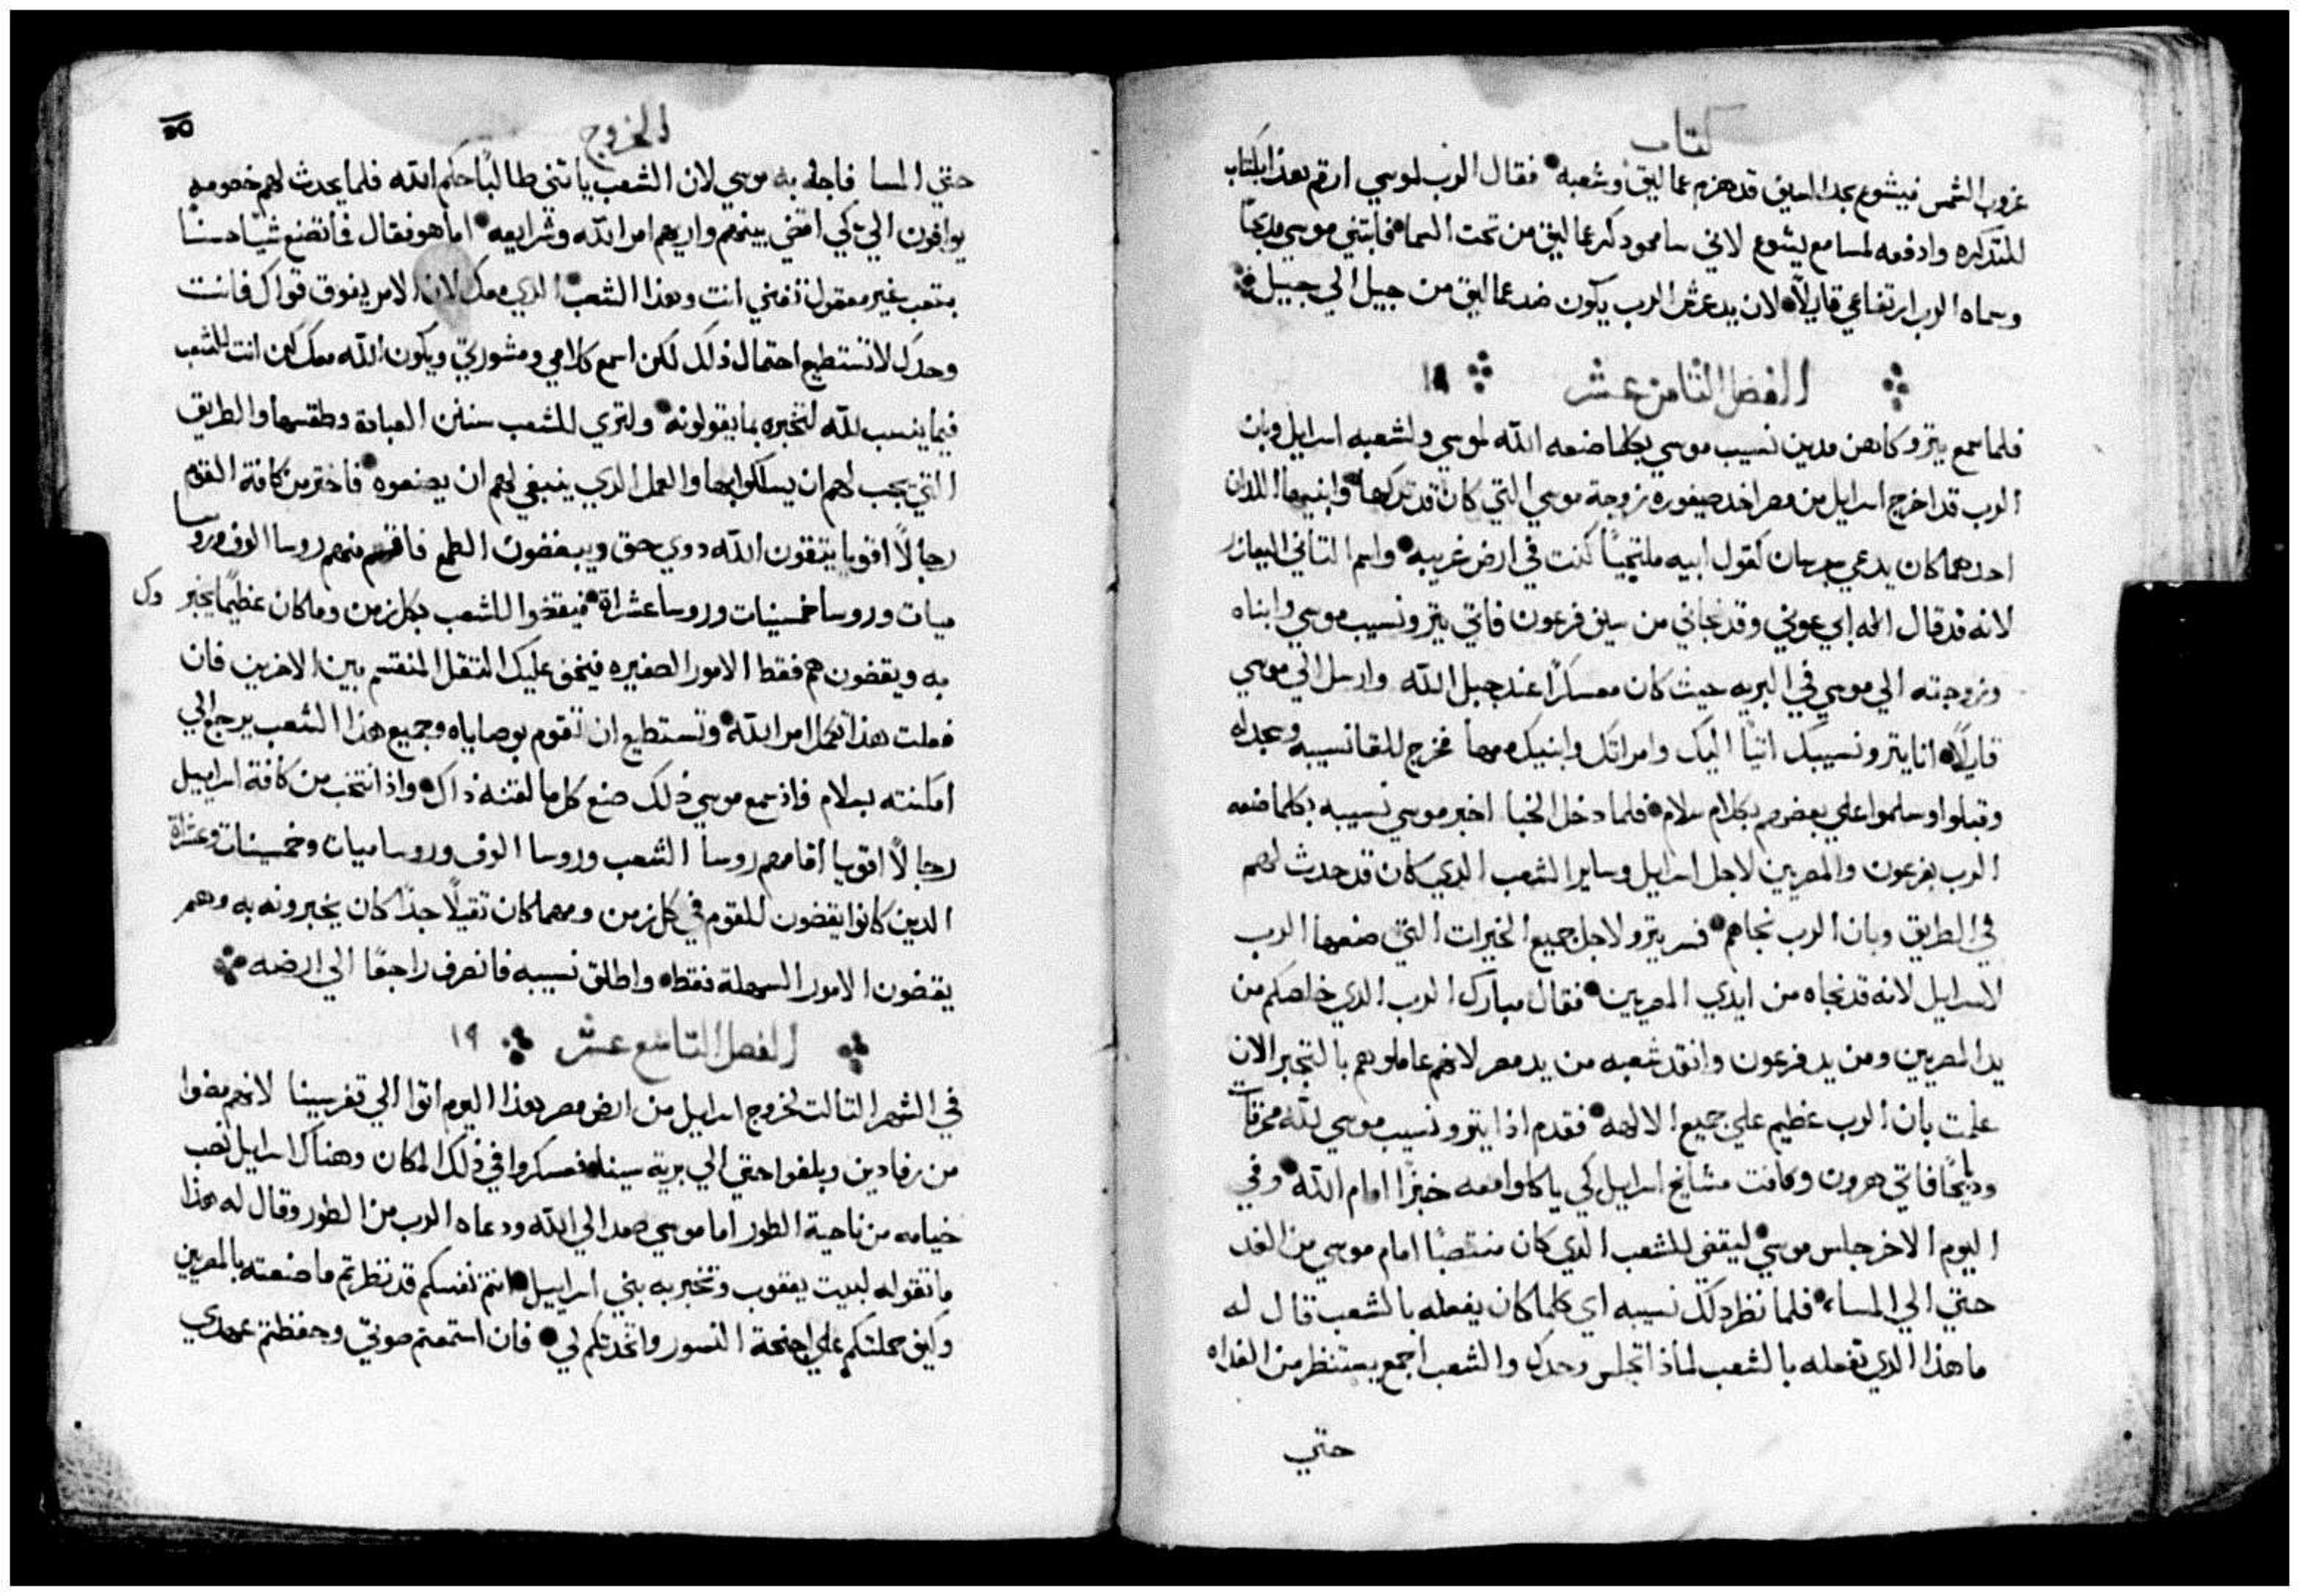 كتاب
غروب الشمس فيشوع بحد السيف قد هزم عماليق وشعبه فقال الرب لموسي ارقم هذا بكتاب
للتذكره وادفعه لمسامع يشوع لاني سامحو ذكر عماليق من تحت السما فابتني موسي مدبحًا
وسماه الرب ارتفاعي قايلًا لان يد عرش الرب يكون ضد عماليق من جيل الي جيل
الفصل التامن عشر ١٨
فلما سمع يترو كاهن مدين نسيب موسي بكلما صنعه الله لموسي ولشعبه اسرايل وبان
الرب قد اخرج اسرايل من مصر اخد صيفوره زوجة موسي التي كان قد تركها وابنيها اللدان
احدهما كان يدعي جرسان لقول ابيه ملتجيًا كنت في ارض غريبه واسم التاني اليعازر
لانه قد قال اله ابي عوني وقد نجاني من سيف فرعون فاتي يترو نسيب موسي وابناه
وزوجته الي موسي في البريه حيث كان معسكرًا عند جبل الله وارسل الي موسي
قايلًا انا يترو نسيبك اتيًا اليك وامراتك وابنيك معها فخرج للقا نسيبه وسجد له
وقبلوا وسلموا علي بعضهم بكلام سلام فلما دخل الخبا اخبر موسي نسيبه بكلما صنعه
الرب بفرعون والمصريين لاجل اسرايل وساير الشعب الدي كان قد حدث لهم
في الطريق وبان الرب نجاهم فسر يترو لاجل جميع الخيرات التي صنعها الرب
لاسرايل لانه قد نجاه من ايدي المصريين فقال مبارك الرب الدي خلصكم من
يد المصريين ومن يد فرعون وانقد شعبه من يد مصر لانهم عاملوهم بالتجبر الان
علمت بان الرب عظيم علي جميع الالهه فقدم اذا يترو نسيب موسي لله محرقات
ودبايحًا فاتي هرون وكافت مشايخ اسرايل كي ياكلوا معه خبزًا امام الله وفي
اليوم الاخر جلس موسي ليقضي للشعب الدي كان منتصبًا امام موسي من الغد
حتي الي المساء فلما نظر دلك نسيبه اي كلما كان يفعله بالشعب قال له
ما هذا الدي تفعله بالشعب لماذا تجلس وحدك والشعب اجمع يستنظر من الغداه
حتي
الخروج
حتي المسا فاجابه موسي لان الشعب ياتني طالبًا حكم الله فلما يحدث لهم خصومه
يوافون الي كي اقضي بينهم واريهم امر الله وشرايعه اما هو فقال فما تصنع شيا حسنًا
بتعب غير معقول تفني انت وهذا الشعب الدي معك لان الامر يفوق قواك فانت
وحدك لا تستطيع احتمال ذلك لكن اسمع كلامي ومشورتي ويكون الله معك كن انت للشعب
فيما ينسب لله لتخبره بما يقولونه ولتري للشعب سنن العبادة وطقسها والطريق
التي يجب لهم ان يسلكوا بها والعمل الدي ينبغي لهم ان يصنعوه فاختر من كافة القوم
رجالًا اقويا يتقون الله دوي حق ويبغضون الطمع فاقم منهم روسا الوف وروسا
ميات وروسا خمسينات وروسا عشراة فيقضوا للشعب بكل زمن وما كان عظيمًا يخبروك
به ويقضون هم فقط الامور الصغيره فيخف عليك التقل المنقسم بين الاخرين فان
فعلت هذا تكمل امر الله وتستطيع ان تقوم بوصاياه وجميع هذا الشعب يرجع الي
امكنته بسلام فاذ سمع موسي ذلك صنع كل ما لقنه ذاك واذ انتخب من كافة اسراييل
رجالًا اقويا اقامهم روسا الشعب وروسا الوف وروسا ميات وخمسينات وعشراة
الدين كانوا يقضون للقوم في كل زمن ومهما كان تقيلًا جدًا كان يخبرونه به وهم
يقضون الامور السهلة فقط واطلق نسيبه فانصرف راجعًا الي ارضه
الفصل التاسع عشر ١٩
في الشهر التالت لخروج اسرايل من ارض مصر هذا اليوم اتوا الي قفر سينا لانهم مضوا
من رفادين وبلغوا حتي الي برية سينا فعسكروا في ذلك المكان وهناك اسرايل نصب
خيامه من ناحية الطور اما موسي صعد الي الله ودعاه الرب من الطور وقال له هذا
ما تقوله لبيت يعقوب وتخبر به بني اسراييل انتم نفسكم قد نظرتم ما صنعته بالمصريين
وكيف حملتكم علي اجنحة النسور واتخدتكم لي فان استمعتم صوتي وحفظتم عهدي